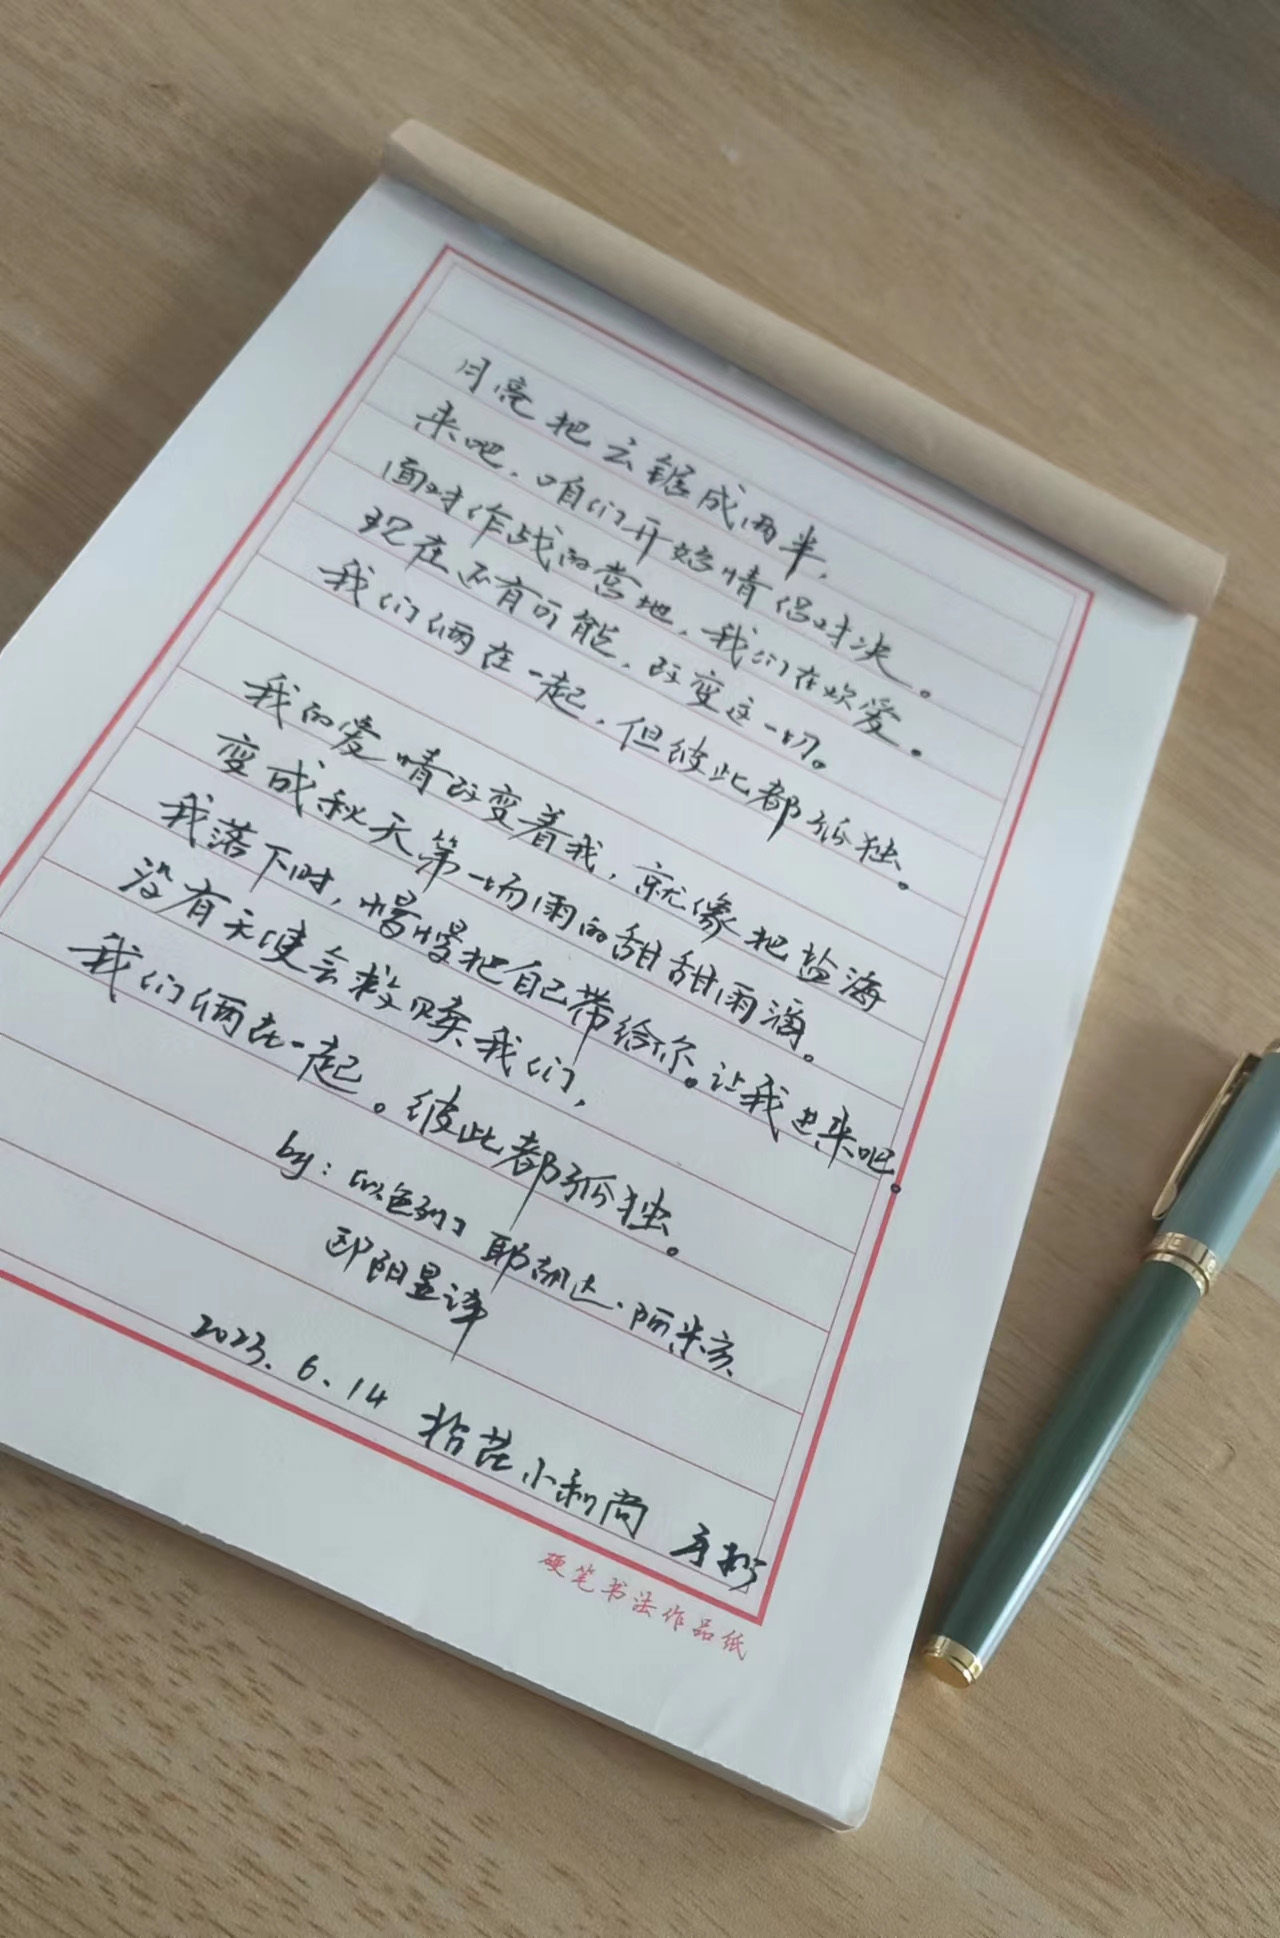 月亮把云锯成两半，
来吧，咱们开始情侣对决。
面对作战的营地，我们在欢爱。
现在还有可能，改变这一切。
我们俩在一起，但彼此都孤独。
我的爱情改变着我，就像把盐海
变成秋天第一场雨的甜甜雨滴。
我落下时，慢慢把自己带给你。让我进来吧。
没有天使会救赎我们，
我们俩在一起。彼此都孤独。
by：以色列 耶胡达·阿米亥
欧阳昱译
2023.6.14 拾花小和尚 手抄
硬笔书法作品纸